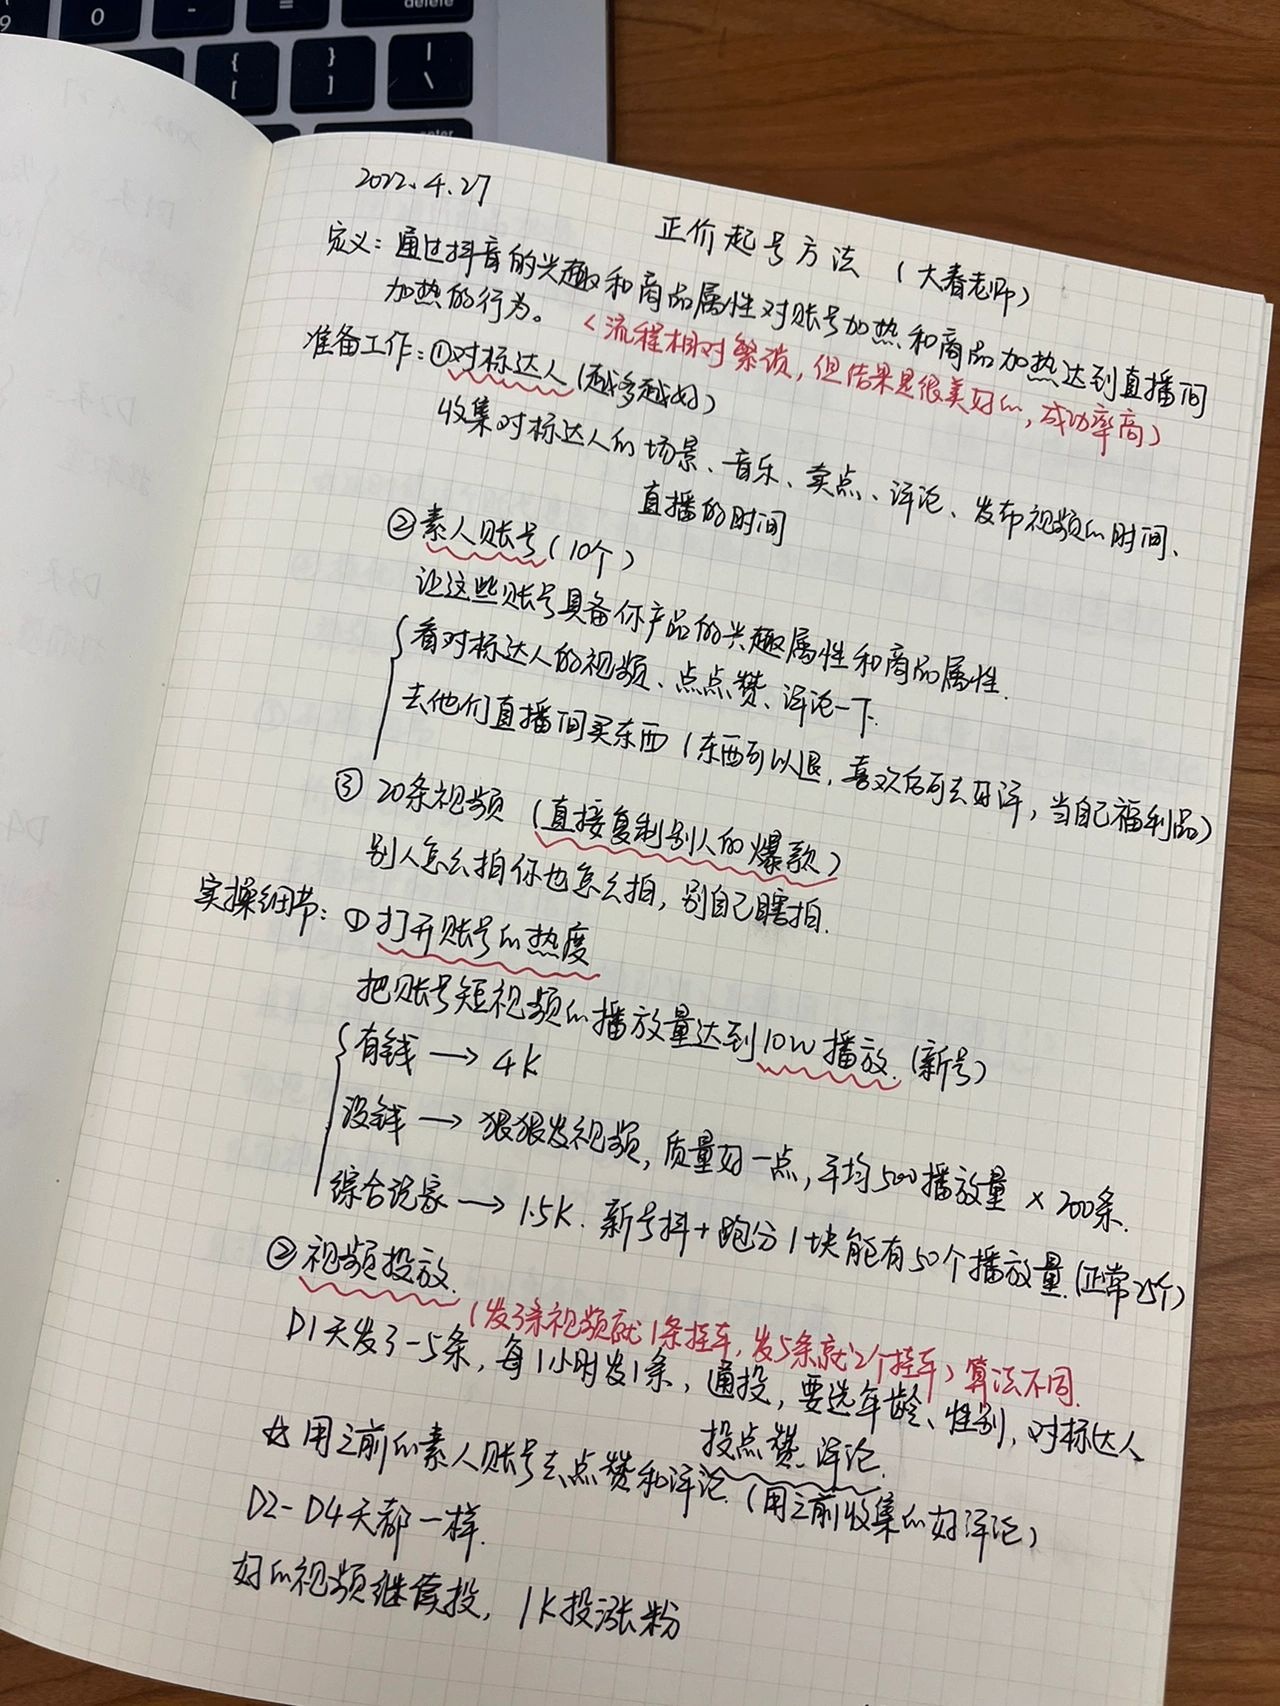 delete
2022.4.27
正价起号方法 (大春老师)
定义：通过抖音的兴趣和商品属性对账号加热和商品加热达到直播间
加热的行为。
<流程相对繁琐，但结果是很美好的，成功率高)
准备工作：①对标达人(越多越好)
收集对标达人的场景、音乐、卖点、评论、发布视频的时间、
直播的时间
②素人账号(10个)
让这些账号具备你产品的兴趣属性和商品属性.
看对标达人的视频、点点赞、评论一下.
去他们直播间买东西(东西可以退，喜欢后可去好评，当自己福利品)
③ 20条视频 (直接复制别人的爆款)
别人怎么拍你也怎么拍，别自己瞎拍.
实操细节：①打开账号的热度
把账号短视频的播放量达到10w播放.(新号)
有钱 → 4K
没钱 → 狠狠发视频，质量好一点，平均500播放量 × 200条.
综合说家 → 1.5K. 新号抖+跑分1块能有50个播放量.(正常25个)
②视频投放.
(发3条视频就1条挂车，发5条就2个挂车)算法不同.
D1天发3-5条，每1小时发1条，通投，要选年龄、性别，对标达人
投点赞、评论.
☆用之前的素人账号去点赞和评论.(用之前收集的好评论)
D2-D4天都一样.
好的视频继续投，1K投涨粉